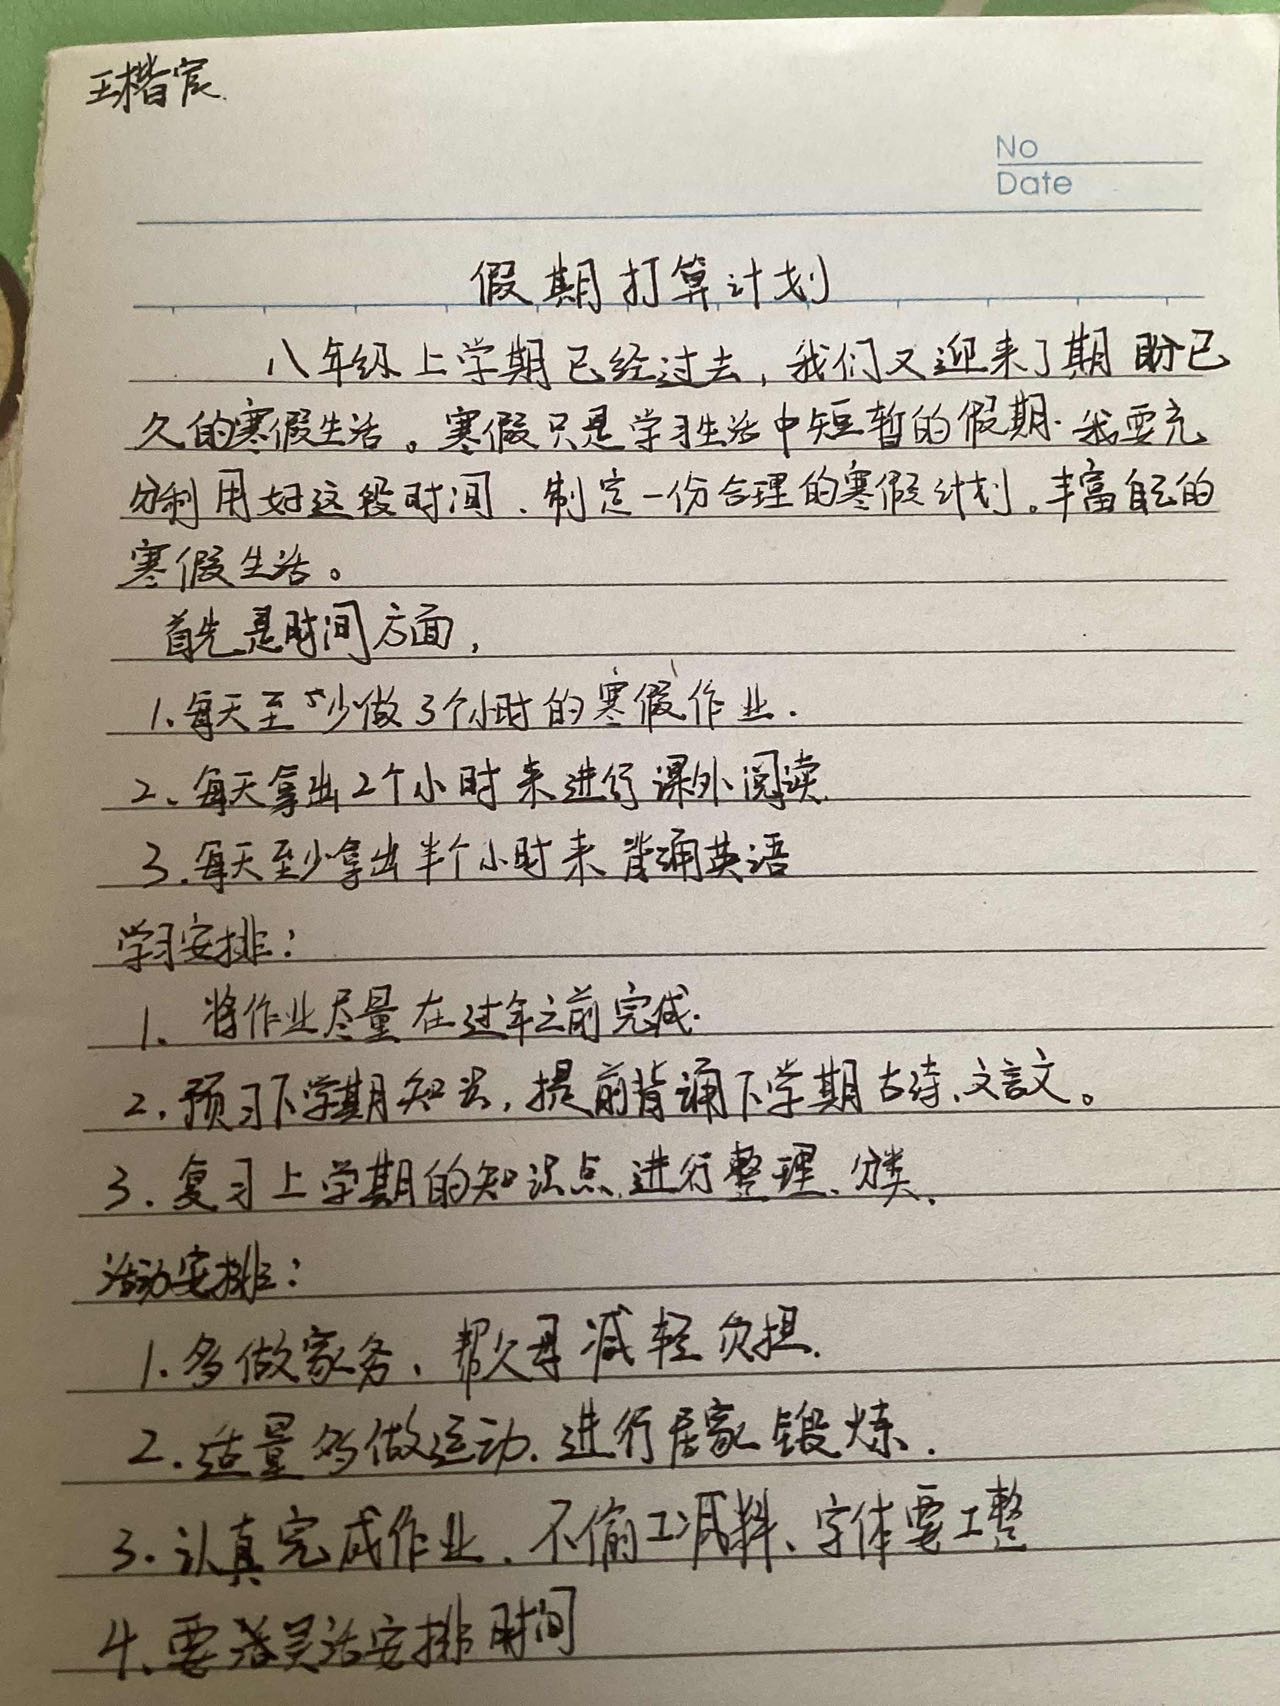 王楷宸
No
Date
假期打算计划
八年级上学期已经过去，我们又迎来了期盼已
久的寒假生活。寒假只是学习生活中短暂的假期.我要充
分利用好这段时间、制定一份合理的寒假计划。丰富自己的
寒假生活。
首先是时间方面，
1.每天至少做3个小时的寒假作业.
2、每天拿出2个小时来进行课外阅读
3.每天至少拿出半个小时来背诵英语
学习安排：
1、将作业尽量在过年之前完成.
2.预习下学期知识，提前背诵下学期古诗、文言文。
3.复习上学期的知识点、进行整理、分类、
活动安排：
1.多做家务、帮父母减轻负担.
2.适量多做运动.进行居家锻炼.
3.认真完成作业、不偷工减料、字体要工整
4.要灵活安排时间